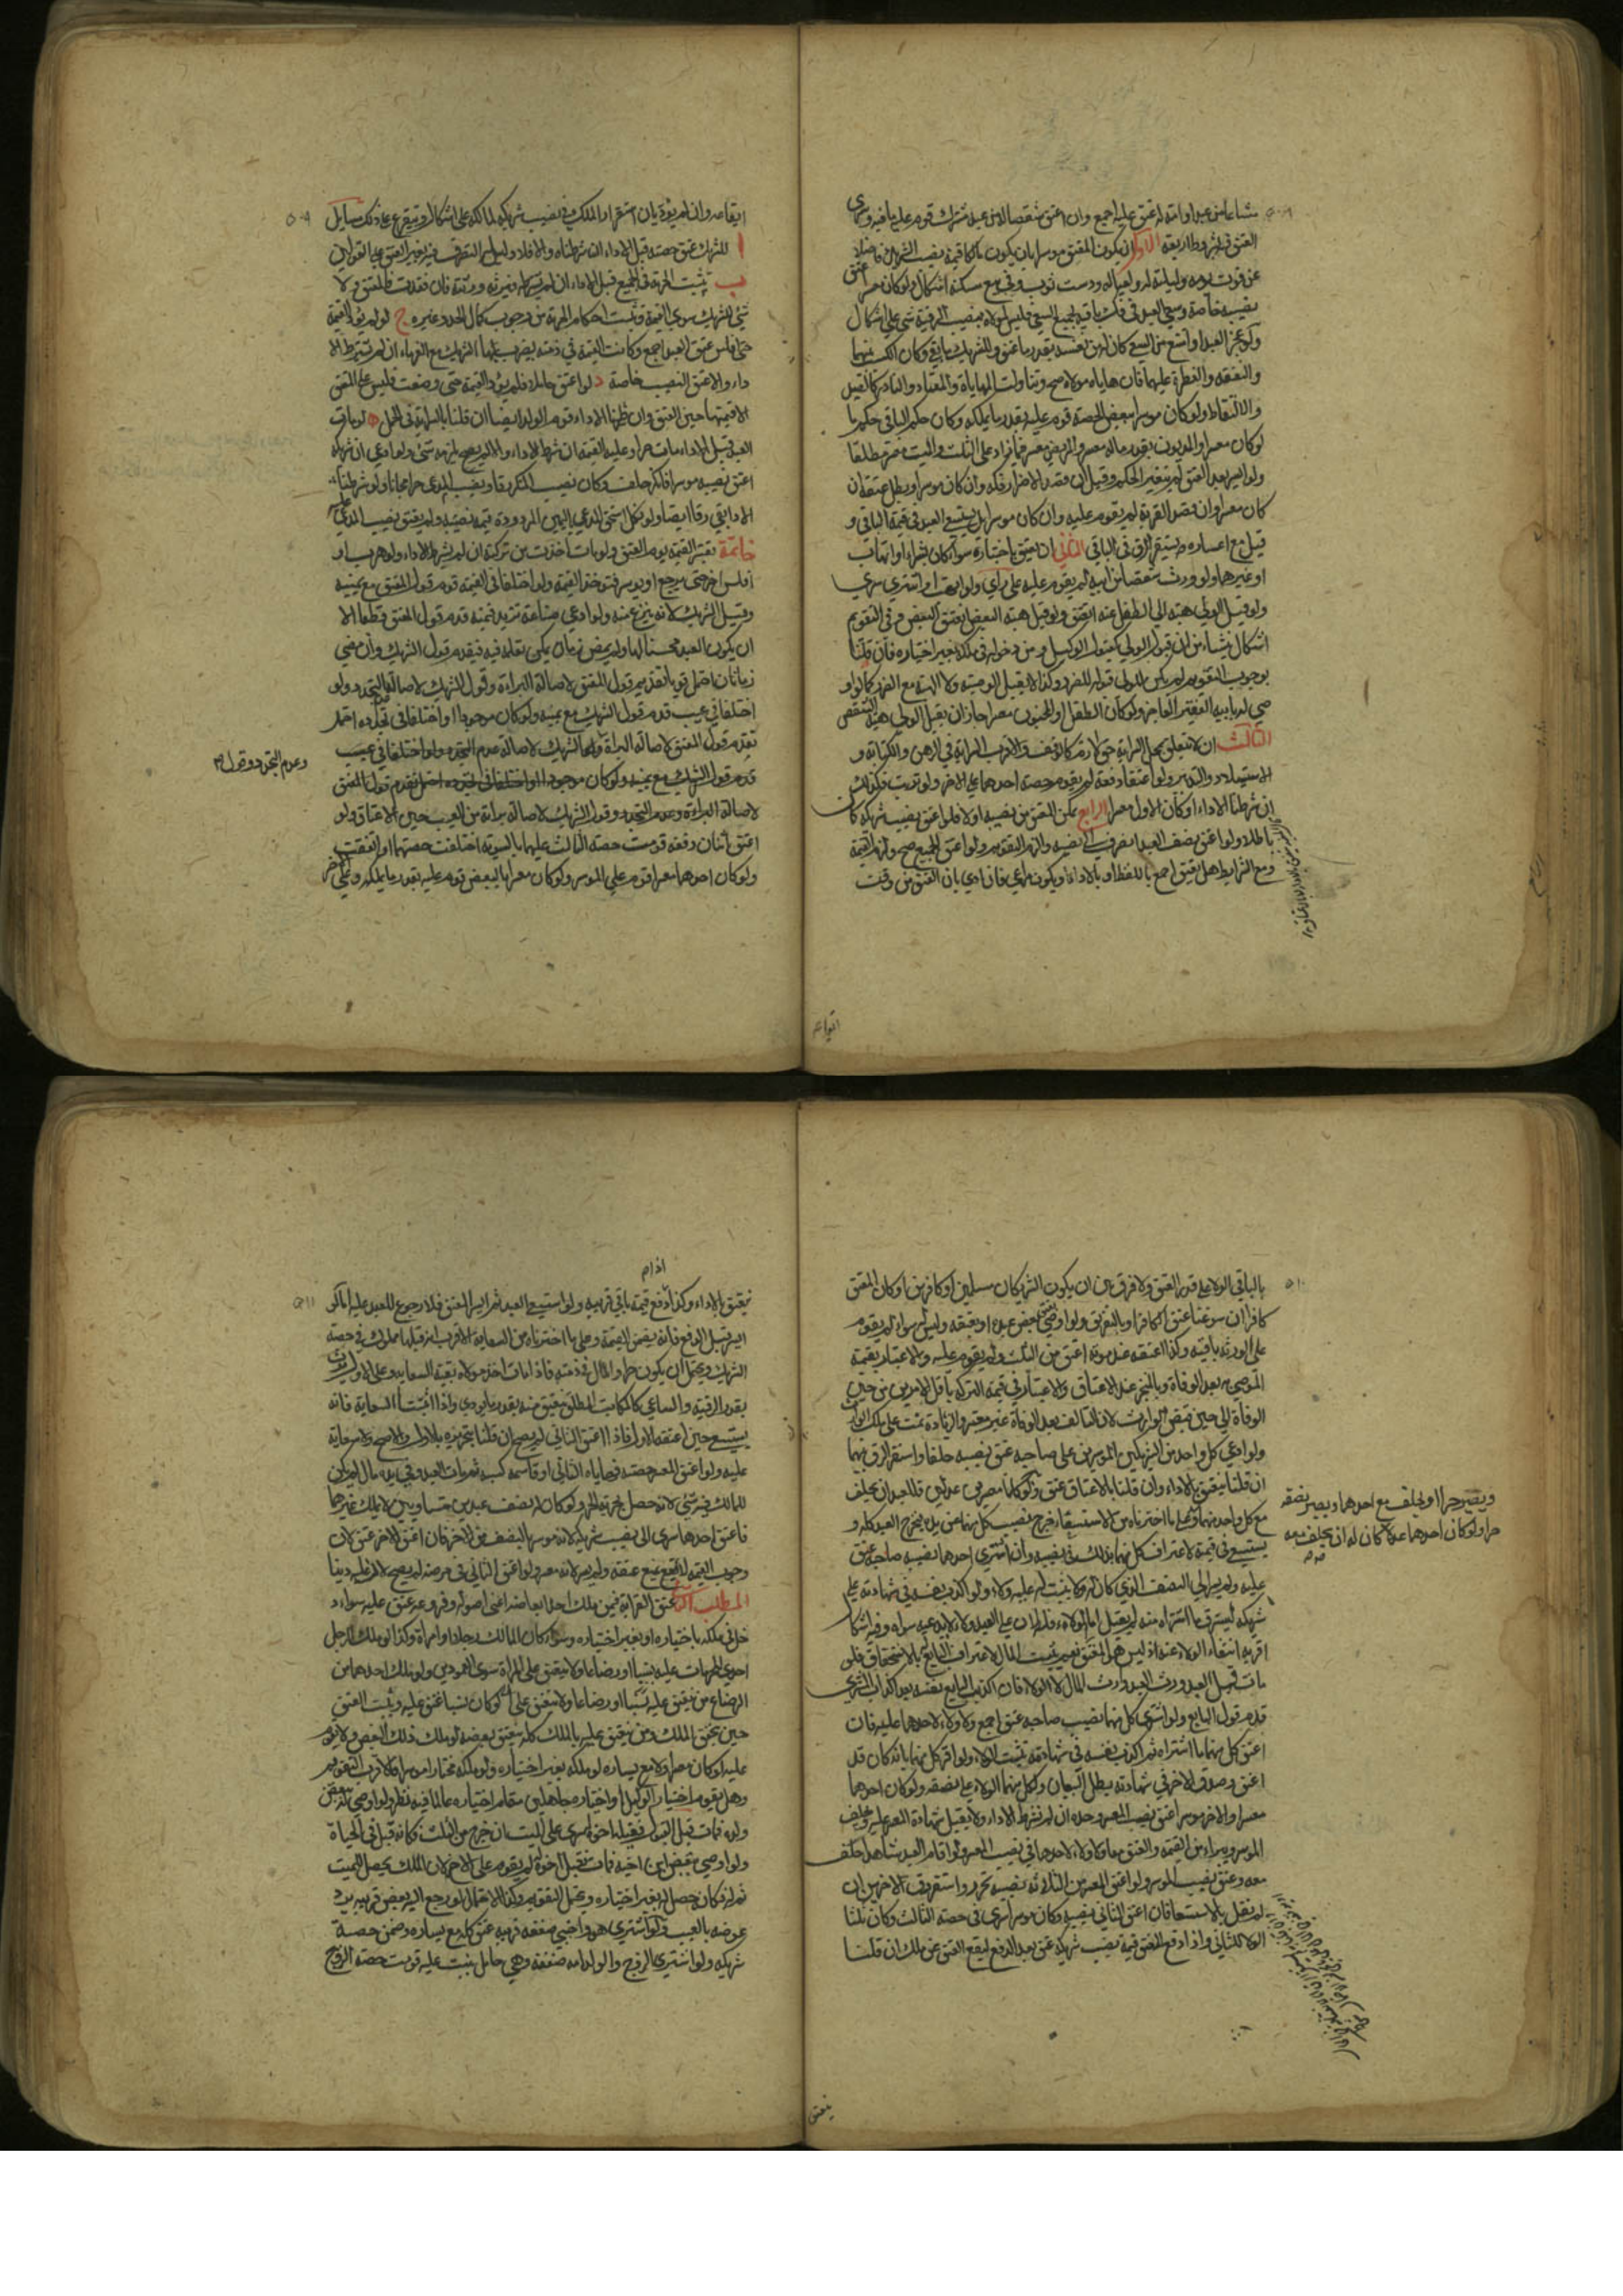 مشاعا من عبده او امته له عتق عليه اجمع وان اعتق شقصا من عبد مشترك قوم عليه باقيه وسرى
العتق فيه بشروط اربعة الاول ان يكون المعتق موسرا بان يكون مالكا قيمة نصيب الشريك فاضلا
عن قوت يومه وليلته له ولعياله ودست ثوب وفي بيع مسكنه اشكال ولو كان معسرا عتق
نصيبه خاصة وسعى العبد في فك باقيه بجميع السعي فليس لمولاه بنصيب الرقية شئ على اشكال
ولو عجز العبد او امتنع من السعي كان له من نفسه بقدر ما عتق وللشريك ما بقي وكان الكسب بينهما
والنفقة والفطرة عليهما فان هاياه مولاه صح وتناولت المهاياة المعتاد والنادر كالصيد
والالتقاط ولو كان موسرا ببعض الحصة قوم عليه بقدر ما يملكه وكان حكم الباقي حكم ما
لو كان معسرا والمديون بقدر ماله معسر والمريض معسر فيما زاد على الثلث والميت معسر مطلقا
ولو ايسر بعد العتق لم يتغير الحكم وقيل ان قصد الاضرار فكه ان كان موسرا وبطل عتقه ان
كان معسرا وان قصد القربة لم يقوم عليه وان كان موسرا بل يستسعى العبد في قيمة الباقي و
قيل مع اعساره يستقر الرق في الباقي الثاني ان يعتق باختياره سواء كان بشراء او اتهاب
او غيرهما ولو ورث شقصا من ابيه لم يقوم عليه على راي ولو اتهب او اشترى سرى
ولو قبل الولي هبة ابي الطفل عنه انعتق ولو قبل هبة البعض انعتق البعض وفي التقويم
اشكال ينشا من ان قبول الولي كقبول الوكيل ومن دخوله في ملكه بغير اختياره فان قلنا
بوجوب التقويم لم يكن للولي قبوله للضرر وكذا لا يقبل الوصية ولا الهبة مع الضرر كما لو او
صى له بابيه الفقير العاجز ولو كان الطفل او المجنون معسرا جاز ان يقبل الولي هبة الشقص
الثالث ان لا يتعلق بمحل السراية حق لازم كالوقف والاقرب السراية في الرهن والكتابة و
الاستيلاد والتدبير ولو اعتقا دفعة لم يقوم حصة احدهما على الاخر ولو ترتب فكذلك
ان شرطنا الاداء او كان الاول معسرا الرابع تمكن العتق من نصيبه اولا فلو اعتق نصيب شريكه كان
باطلا ولو اعتق نصف العبد انصرف الى نصيبه ولزم التقويم ولو اعتق الجميع صح ولزم القيمة
ومع الشرايط هل يعتق اجمع باللفظ او بالاداء او يكون مراعى فان ادى بان العتق من وقت
ايقاعه
ايقاعه وان لم يؤد بان استقرار الملك في نصيب شريكه لمالكه على اشكال ويتفرع على ذلك مسايل
ا للشريك عتق حصته قبل الاداء ان شرطناه والا فلا وليس له التصرف فيه بغير العتق على القولين
ب تثبت الحرية في الجميع قبل الاداء ان لم نشرطه فيرثه ورثته فان فقدت فالمعتق ولا
شئ للشريك سوى القيمة وتثبت احكام الحرية من وجوب كمال الحد وغيره ج لو لم يؤد القيمة
حتى افلس عتق العبد اجمع وكانت القيمة في ذمته يضرب بها الشريك مع الغرماء ان لم نشترط الا
داء والا عتق النصيب خاصة د لو اعتق حاملا فلم يؤد القيمة حتى وضعت فليس على المعتق
الا قيمتها حين العتق وان شرطنا الاداء قوم الولد ايضا ان قلنا بالسراية في الحمل ه لو مات
العبد قبل الاداء مات حرا وعليه القيمة ان لم نشرط الاداء والا لم يلزمه شئ ولو ادعى ان شريكه
اعتق نصيبه موسرا فانكر حلف وكان نصيب المنكر رقا ونصيب المدعي حرا مجانا ولو شرطنا
الاداء بقي رقا ايضا ولو نكل استحق المدعي باليمين المردودة قيمة نصيبه ولم يعتق نصيب المدعى عليه
خاتمة تعتبر القيمة يوم العتق ولو مات اخذت من تركته ان لم نشرط الاداء ولو هرب او
افلس اخر حتى يرجع او يوسر فتؤخذ القيمة ولو اختلفا في القيمة قدم قول المعتق مع يمينه
وقيل الشريك لانه ينتزع منه ولو ادعى صناعة تزيد قيمته قدم قول المعتق قطعا الا
ان يكون العبد محسنا لها ولم يمض زمان يمكن تعلمه فيه فيقدم قول الشريك وان مضى
زمان احتمل تقديم قول المعتق لاصالة البراءة وقول الشريك لاصالة عدم التجدد ولو
اختلفا في عيب قدم قول الشريك مع يمينه ولو كان موجودا واختلفا في تجدده احتمل
تقديم قول المعتق لاصالة البراءة وقول الشريك لاصالة عدم التجدد ولو اختلفا في عيب
قدم قول الشريك مع يمينه ولو كان موجودا واختلفا في تجدده احتمل تقديم قول المعتق
وعدم التجدد وقول
لاصالة البراءة وعدم التجدد وقول الشريك لاصالة براءته من العيب حين الاعتاق ولو
اعتق اثنان دفعة قومت حصة الثالث عليهما بالسوية اختلفت حصتهما او اتفقت
ولو كان احدهما معسرا قوم على الموسر ولو كان معسرا بالبعض قوم عليه بقدر ما يملكه وعلى الاخر
بالباقي الولاء على قدر العتق ولا فرق بين ان يكون الشريكان مسلمين او كافرين او كان المعتق
كافرا ان سوغنا عتق الكافر او بالتفريق ولو اوصى بعتق بعض عبده او بعتقه وليس له سواه لم يقوم
على الورثة باقيه وكذا لو اعتقه عند موته اعتق من الثلث ولم يقوم عليه والاعتبار بقيمة
الموصى به بعد الوفاة وبالمنجز عند الاعتاق والاعتبار في قيمة التركة باقل الامرين من حين
الوفاة الى حين قبض الوارث لان التالف بعد الوفاة غير معتبر والزيادة نمت على ملك الوارث
ولو ادعى كل واحد من الشريكين الموسرين على صاحبه عتق نصيبه حلفا واستقر الرق بينهما
ان قلنا ينعتق بالاداء وان قلنا بالاعتاق عتق ولو كانا معسرين عدلين فللعبد ان يحلف
مع كل واحد منهما وعلى ما اخترناه من الاستسعاء يخرج نصيب كل منهما من يده فيخرج العبد كله و
ويصير حرا او يحلف مع احدهما ويصير نصفه
حرا ولو كان احدهما عدلا كان له ان يحلف معه
يستسعى في قيمته لاعتراف كل منهما بذلك في نصيبه وان اشترى احدهما نصيب صاحبه عتق
عليه ولم يسر الى النصف الذي كان له ولا يثبت له عليه ولاء ولو اكذب نفسه في شهادته على
شريكه ليسترق ما اشتراه منه لم يقبل اما الولاء فله لان على العبد ولاء لا يدعيه سواه وفيه اشكال
اقربه انتفاء الولاء عنه اذ ليس هو المعتق نعم يثبت المال لاعتراف البايع بالاستحقاق فلو
مات قبل العبد ورث العبد وارث المال لا الولاء فان اكذب البايع نفسه بعد اكذاب المشتري
قدم قول البايع ولو اشترى كل منهما نصيب صاحبه عتق اجمع ولا ولاء لاحدهما عليه فان
اعتق كل منهما ما اشتراه ثم اكذب نفسه في شهادته ثبت الولاء ولو اقر كل منهما بانه كان قد
اعتق وصدق الاخر في شهادته بطل البيعان ولكل منهما الولاء على نصفه ولو كان احدهما
معسرا والاخر موسرا عتق نصيب المعسر وحده ان لم نشرط الاداء ولا يقبل شهادة المعسر عليه ويحلف
الموسر ويبراء من القيمة والعتق معا ولا ولاء لاحدهما في نصيب المعسر ولو اقام العبد شاهدا حلف
معه وعتق نصيب الموسر ولو اعتق المعسر من الثلاثة نصيبه تحرر واستقر رق الاخرين ان
لم نقل بالاستسعاء فان اعتق الثاني نصيبه وكان موسرا سرى في حصة الثالث وكان ثلثا
الولاء للثاني واذا دفع المعتق قيمة نصيب شريكه عتق بعد الدفع ليقع العتق عن ملك ان قلنا
ينعتق
اذا
ينعتق بالاداء وكذا دفع قيمة باقي قريبه ولو استسعى العبد ثم ايسر المعتق فلا رجوع للعبد عليه اما لو
ايسر قبل الدفع فانه يضمن القيمة وعلى ما اخترناه من السعاية الاقرب انه قبلها مملوك في حصة
الشريك ويحتمل ان يكون حرا والمال في ذمته فاذا مات اخذ مولاه بقية السعاية وعلى الاول يرث
بقدر الرقية والساعي كالمكاتب المطلق ينعتق منه بقدر ما يؤدي واذا اثبتنا السعاية فانه
يستسعى حين اعتقه الاول فاذا اعتق الثاني لم يصح ان قلنا بتحريره بالاول والا صح ولا سعاية
عليه ولو اعتق المعسر حصته وهاياه الثاني او قاسمه كسبه ثم مات العبد وفي يده مال لم يكن
للمالك فيه شئ لانه حصل بجزئه الحر ولو كان له نصف عبدين متساويين لا يملك غيرهما
فاعتق احدهما سرى الى نصيب شريكه لانه موسر بالنصف من الاخر فان اعتق الاخر عتق لان
وجوب القيمة لا يمنع عتقه ولم يسر لانه معسر ولو اعتق الثاني في مرضه لم يصح لان عليه دينا
المطلب عتق القرابة فمن ملك احد ابعاضه اعني اصوله وفروعه عتق عليه سواء د
خل في ملكه باختياره او بغير اختياره وسواء كان المالك رجلا او امراة وكذا لو ملك الرجل
احدى المحرمات عليه نسبا او رضاعا ولا ينعتق على المراة سوى العمودين ولو ملك احدهما من
الرضاع من ينعتق عليه نسبا او رضاعا ولا ينعتق على لو كان نسبا عتق عليه ويثبت العتق
حين يتحقق الملك ومن ينعتق عليه بالملك كله ينعتق بعضه لو ملك ذلك البعض ولا يقوم
عليه لو كان معسرا ولا مع يساره لو ملكه بغير اختياره ولو ملكه مختارا موسرا فالاقرب التقويم
وهل يقوم اختيار الوكيل او اختياره جاهلين مقام اختياره عالما فيه نظر ولو اوصى له ببعض
ولده فمات قبل القبول فقبله اخوه له سرى على الميت ان خرج من الثلث وكانه قبل في الحياة
ولو اوصى ببعض ابن اخيه فمات فقبل اخوه لم يقوم على الاخ لان الملك يحصل للميت
ثم له فكانه حصل له بغير اختياره ويحتمل التقويم وكذا الاحتمال لو رجع اليه بعض قريبه برد
عوضه بالعيب ولو اشترى هو واجنبي صفقة قريبه عتق كله مع يساره وضمن حصة
شريكه ولو اشترى الزوج والولد امه صفقة وهي حامل ببنت عليه قومت حصة الزوج